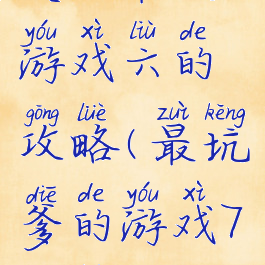 yóu xì liù de
游戏六的
gōng lüè zuì kēng
攻略(最坑
diē de yóu xì
爹的游戏7